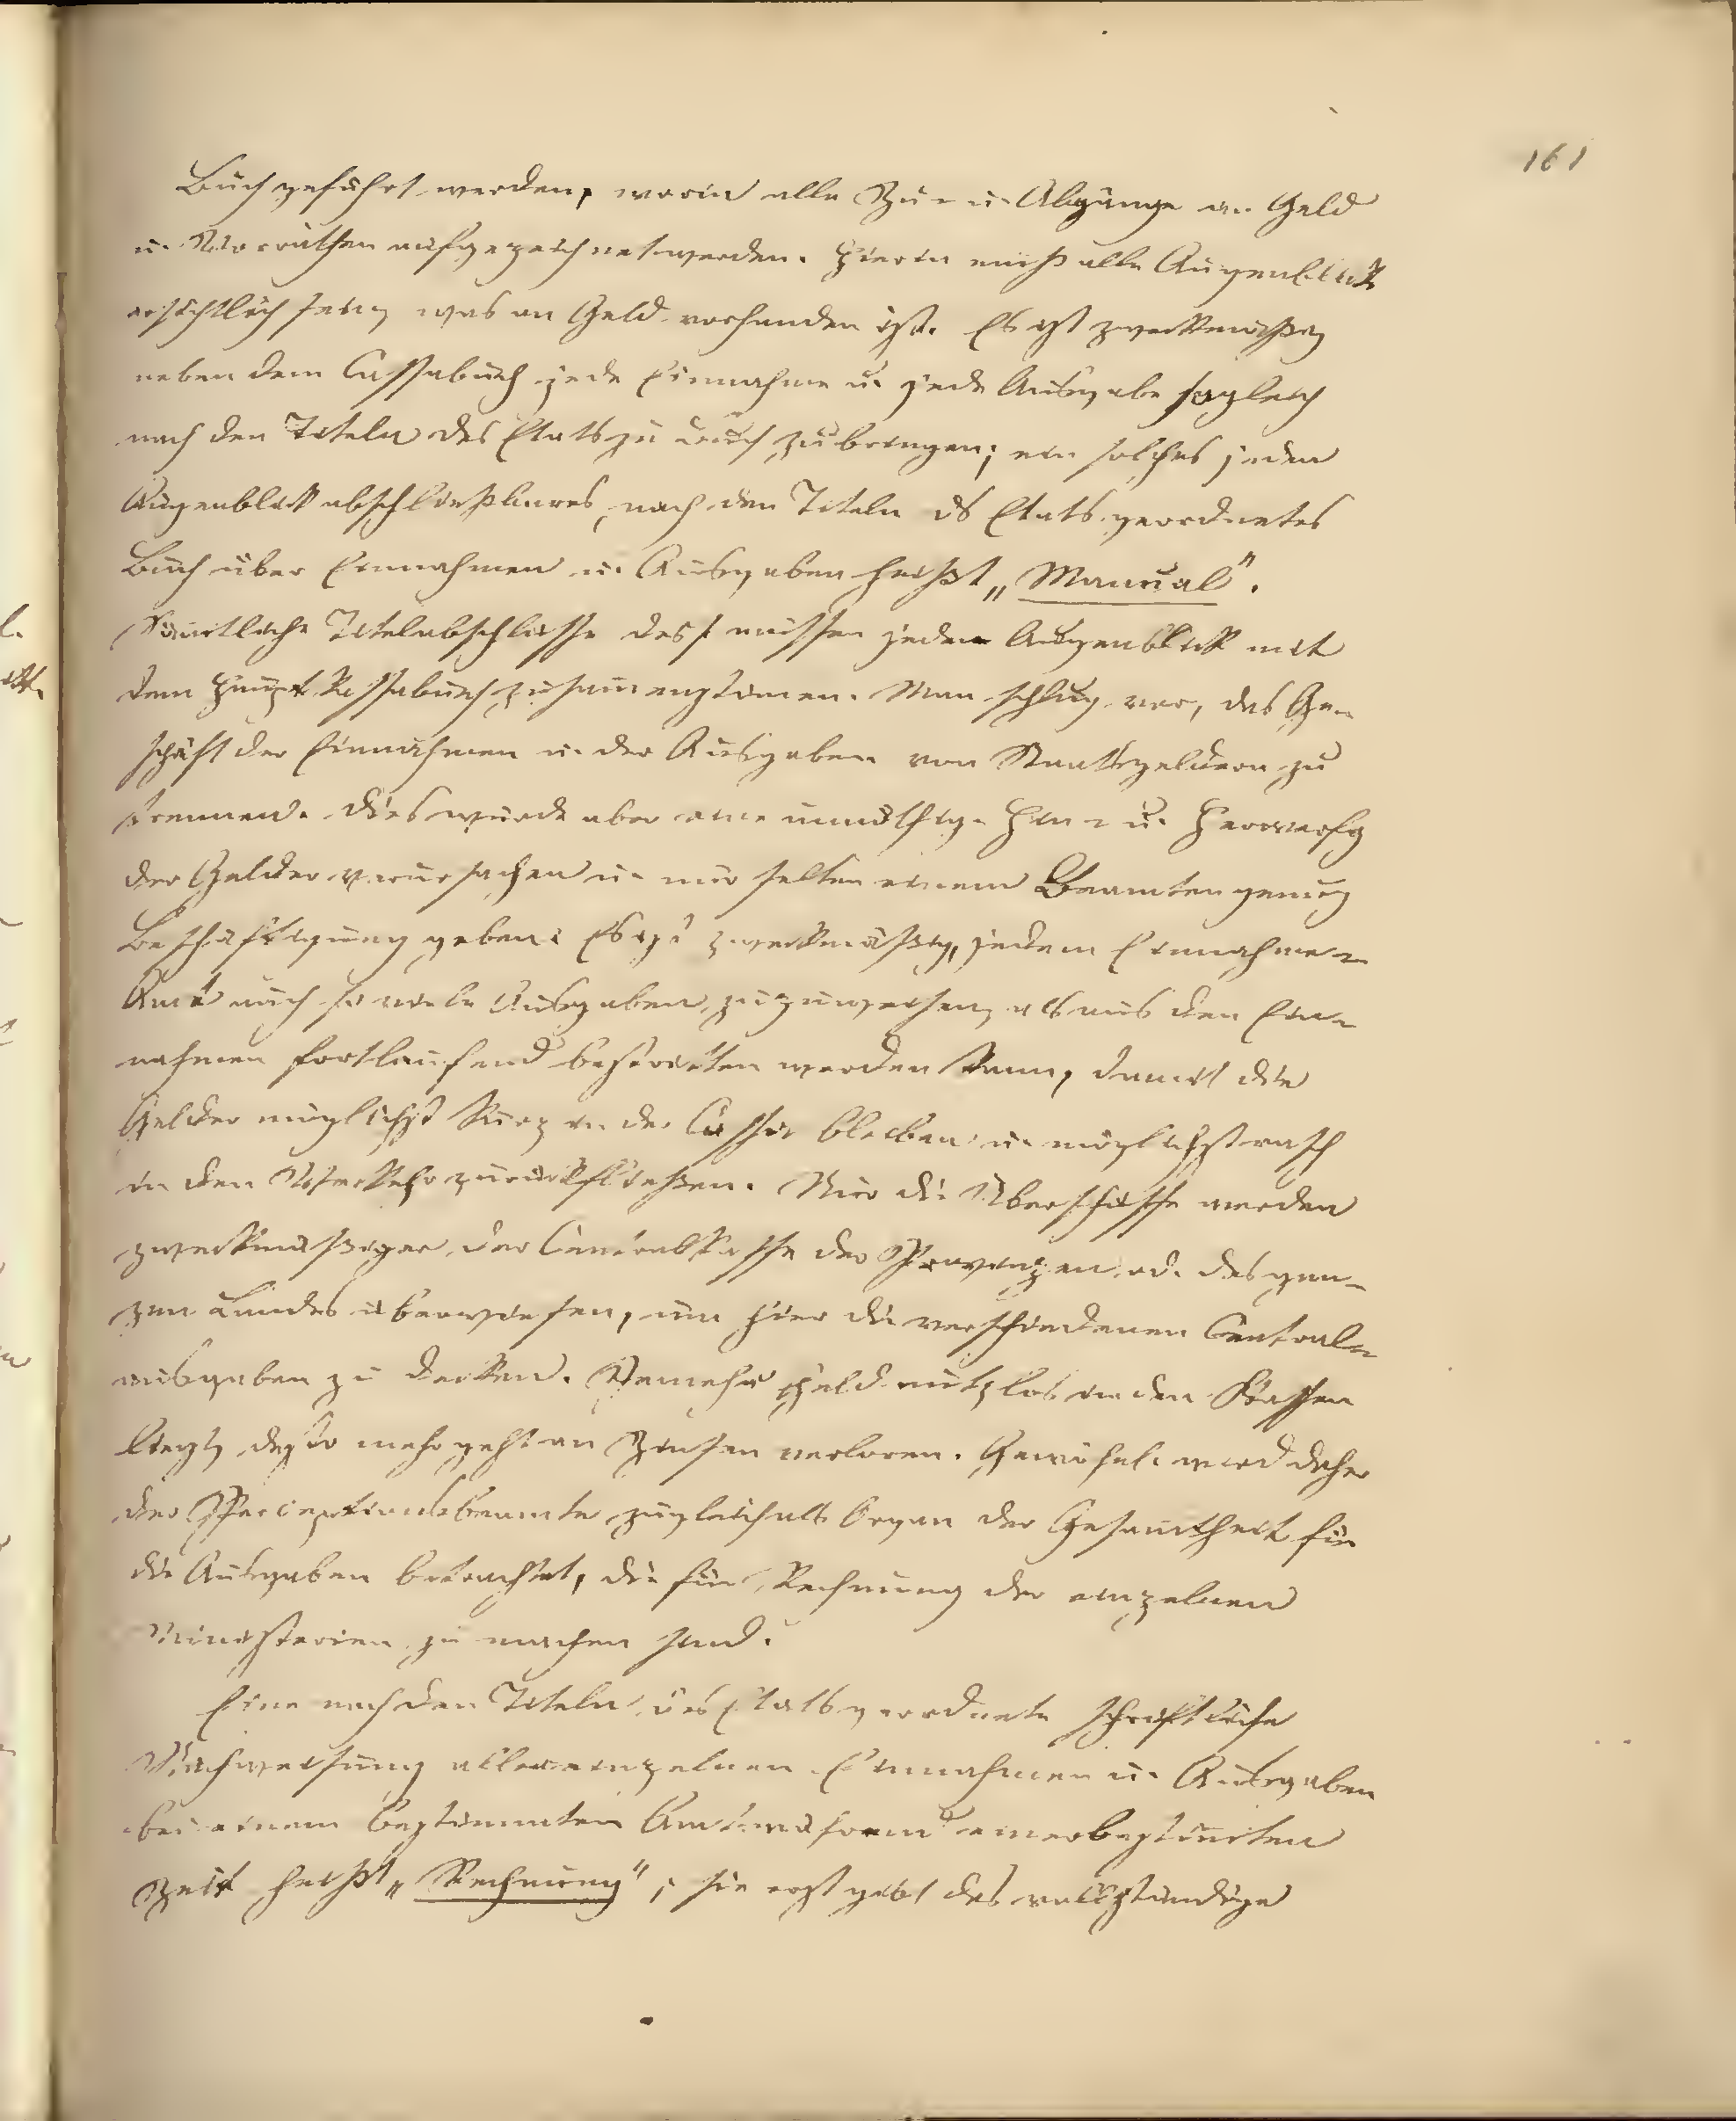 161
Buch geführt werden, worin alle Zu- u. Abgänge an Geld
u. Vorräthen aufgezeichnet werden. Hierin muß alle Augenblick
ersichtlich sein, was an Geld vorhanden ist. Es ist zweckmäßig
neben dem Cassabuch jede Einnahme u. jede Ausgabe sogleich
nach den Titeln des Etats zu Buch zu bringen; ein solches jeden
Augenblick abschließbares, nach den Titeln ds Etats geordnetes
Buch über Einnahmen u. Ausgaben heißt „Manual“.
Sämtliche Titelabschlüsse dess. müssen jeden Augenblick mit
dem Hauptkassabuch zusammenstimen. Man schlug vor, das Ge-
schäft der Einnahmen u. der Ausgaben von Staatsgeldern zu
trennen. Dies würde aber eine unnöthige Hin- u. Herwerfg
der Gelder verursachen u. nur selten einem Beamten genug
Beschäftigung geben. Es ist zweckmäßig, jedem Einnahme-
Amt auch so viele Ausgaben zuzuweisen, als aus den Ein-
nahmen fortlaufend bestritten werden kann, damit die
Gelder möglichst kurz in der Cassa bleiben u. möglichst rasch
in den Verkehr zurückfließen. Nur die Überschüsse werden
zweckmäßiger der Centralkasse der Provinzen od. des gan-
zen Landes überwiesen, um hier die verschiedenen Central-
ausgaben zu decken. Jemehr Geld nutzlos in den Kassen
liegt, desto mehr geht an Zinsen verloren. Gewöhnl. wird daher
der Perceptionsbeamte zugleich als Organ der Gesamtheit für
die Ausgaben betrachtet, die für Rechnung der einzelnen
Ministerien zu machen sind.
Eine nach den Titeln des Etats geordnete schriftliche
Nachweisung aller einzelnen Einnahmen u. Ausgaben
bei einem bestimmten Amt während einer bestimten
Zeit heißt „Rechnung“; sie erst gibt das vollständige